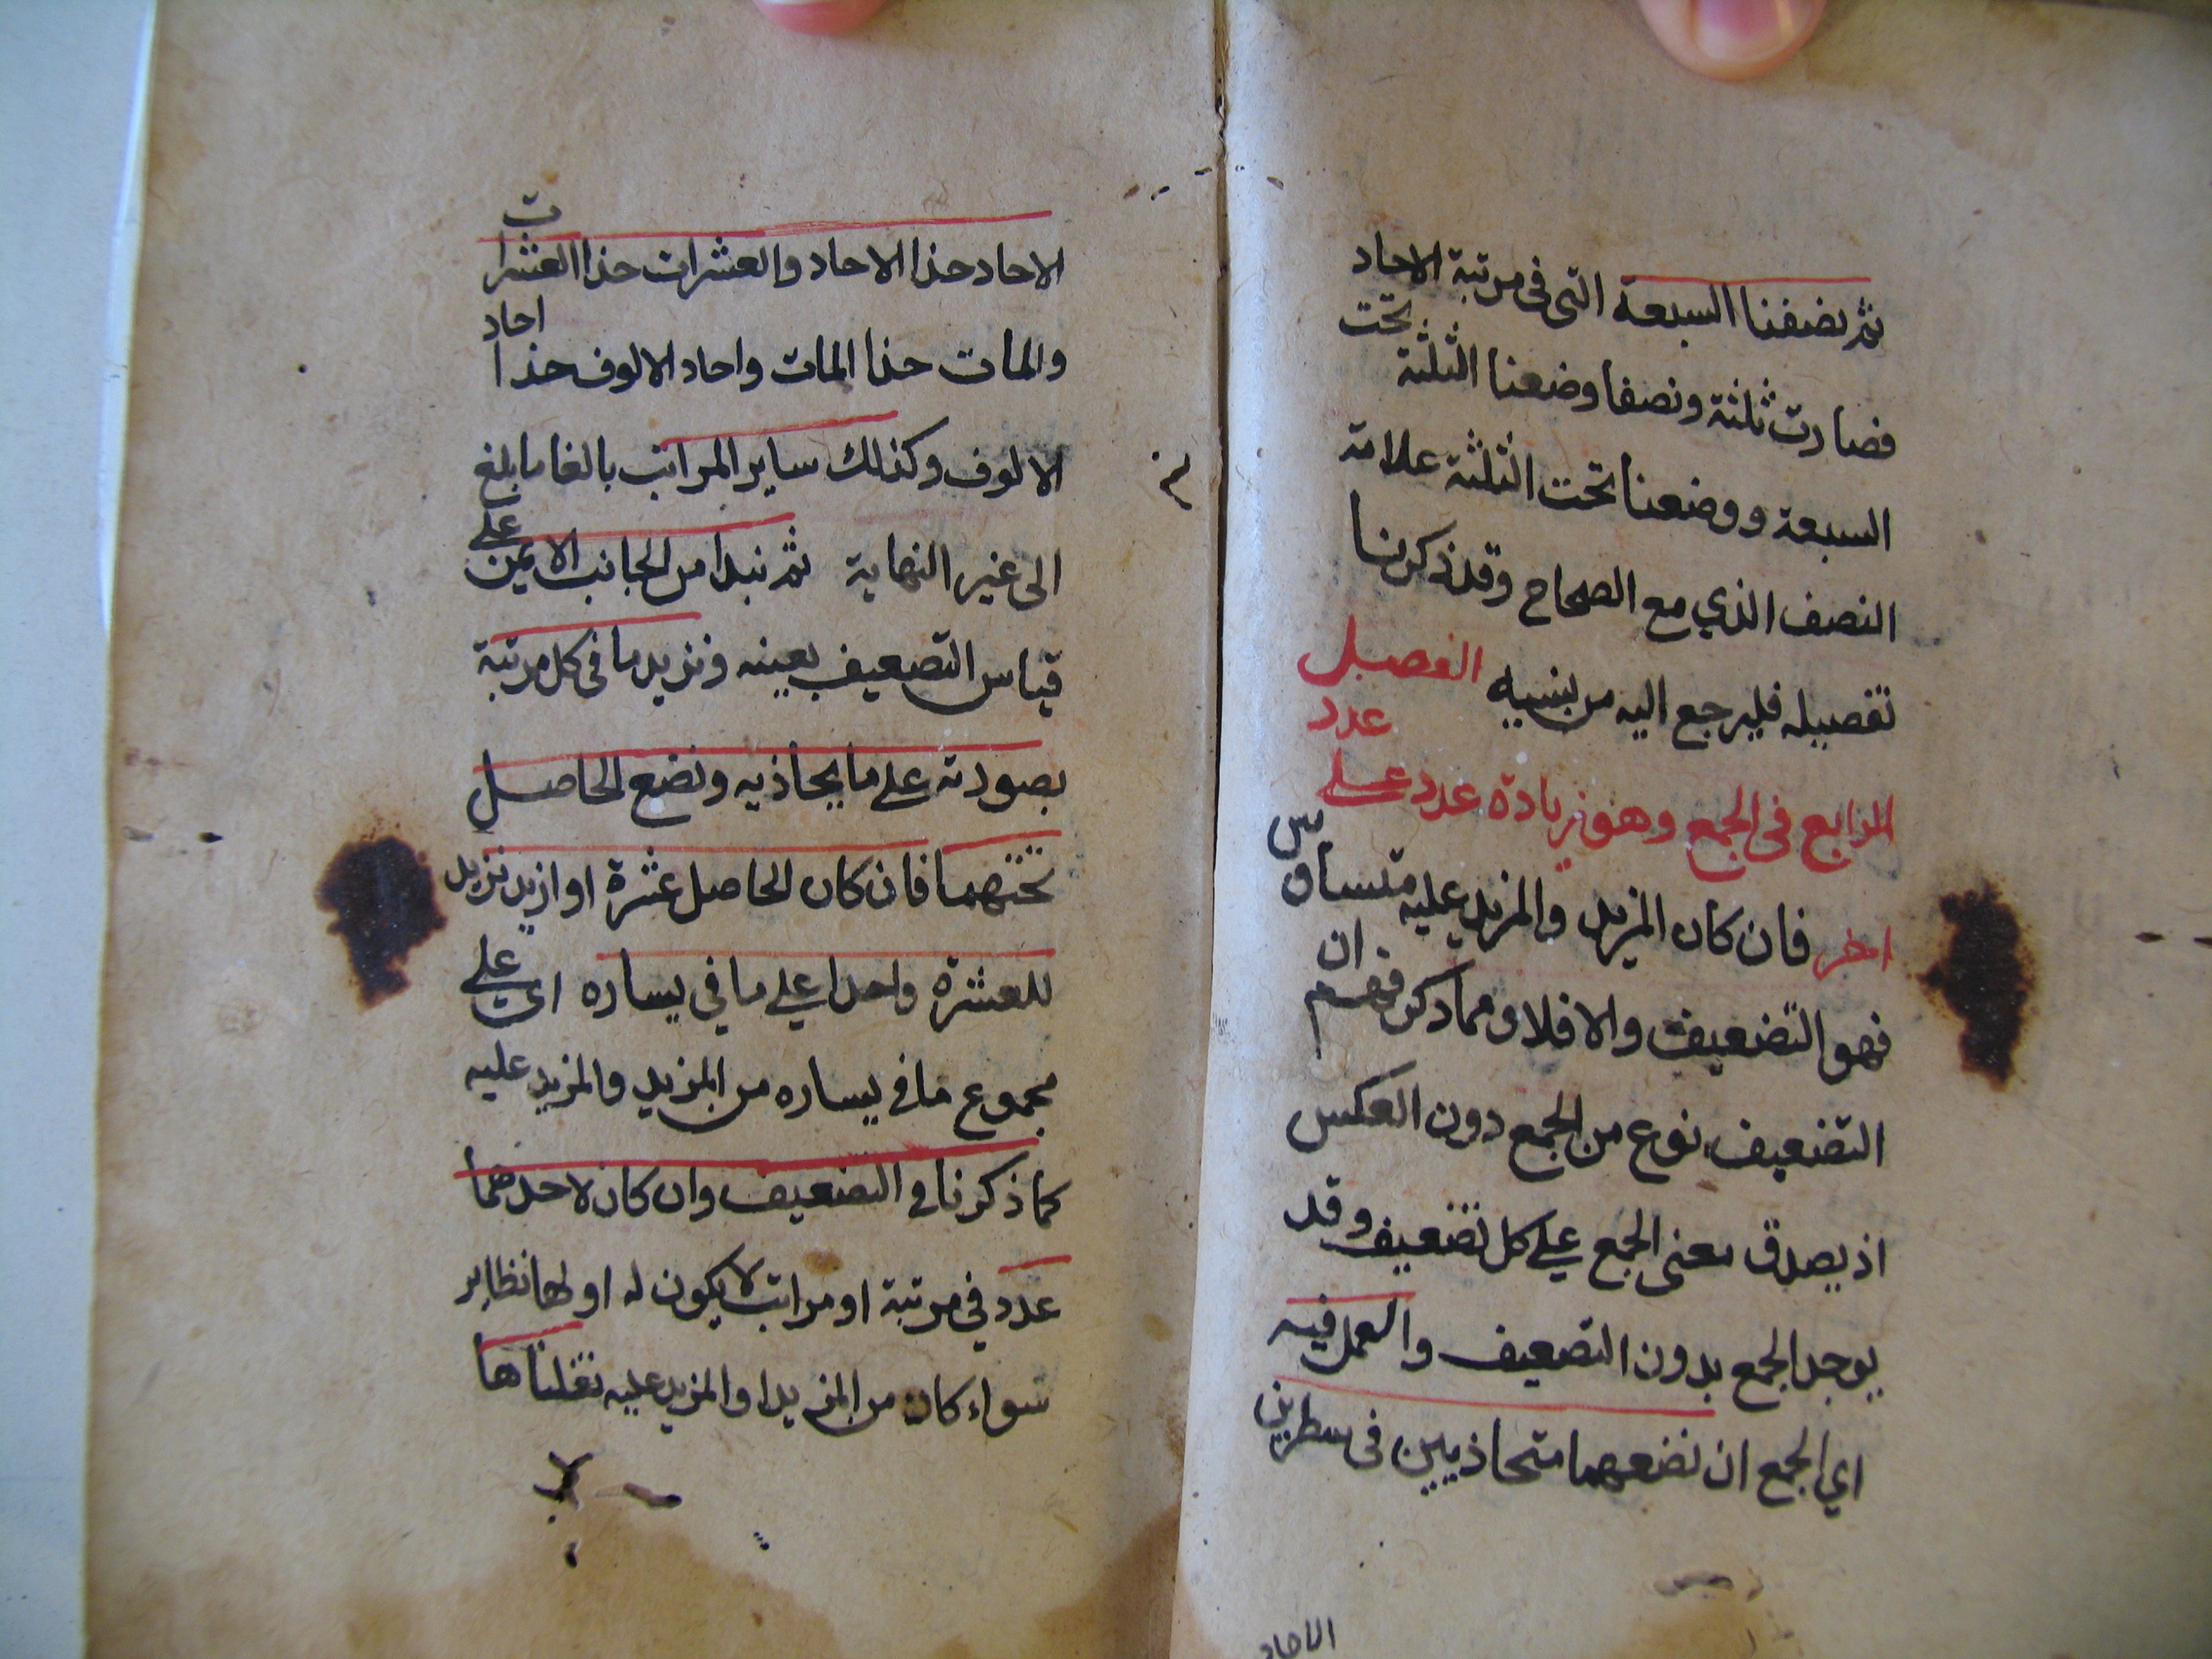 ثم نصفنا السبعة التى فى مرتبة الاحاد
فصارت ثلثة ونصفا وضعنا الثلثة تحت
السبعة ووضعنا تحت الثلثة علامة
النصف الذي مع الصحاح وقد ذكرنا
تفصيله فليرجع اليه من نسيه الفصل
الرابع فى الجمع وهو زيادة عدد على عدد
اخر فان كان المزيد والمزيد عليه متساويين
فهو التضعيف والا فلا ومما ذكر فهم ان
التضعيف نوع من الجمع دون العكس
اذ يصدق معنى الجمع علي كل تضعيف وقد
يوجد الجمع بدون التضعيف والعمل فيه
اي الجمع ان نضعهما متحاذيين فى سطرين
الاحاد
الاحاد حذا الاحاد والعشرات حذا العشرات
والمات حذا المات واحاد الالوف حذا احاد
الالوف وكذلك ساير المراتب بالغا ما بلغ
الى غير النهاية ثم نبدا من الجانب الايمن على
قياس التضعيف بعينه ونزيد ما فى كل مرتبة
بصورته على ما يحاذيه ونضع الحاصل
تحتهما فان كان الحاصل عشرة او ازيد نزيد
للعشرة واحدا علي ما في يساره اى علي
مجموع ما في يساره من المزيد والمزيد عليه
كما ذكرنا في التضعيف وان كان لاحدهما
عدد في مرتبة او مراتب لا يكون له او لها نظاير
سواء كان من المزيد او المزيد عليه نقلناها